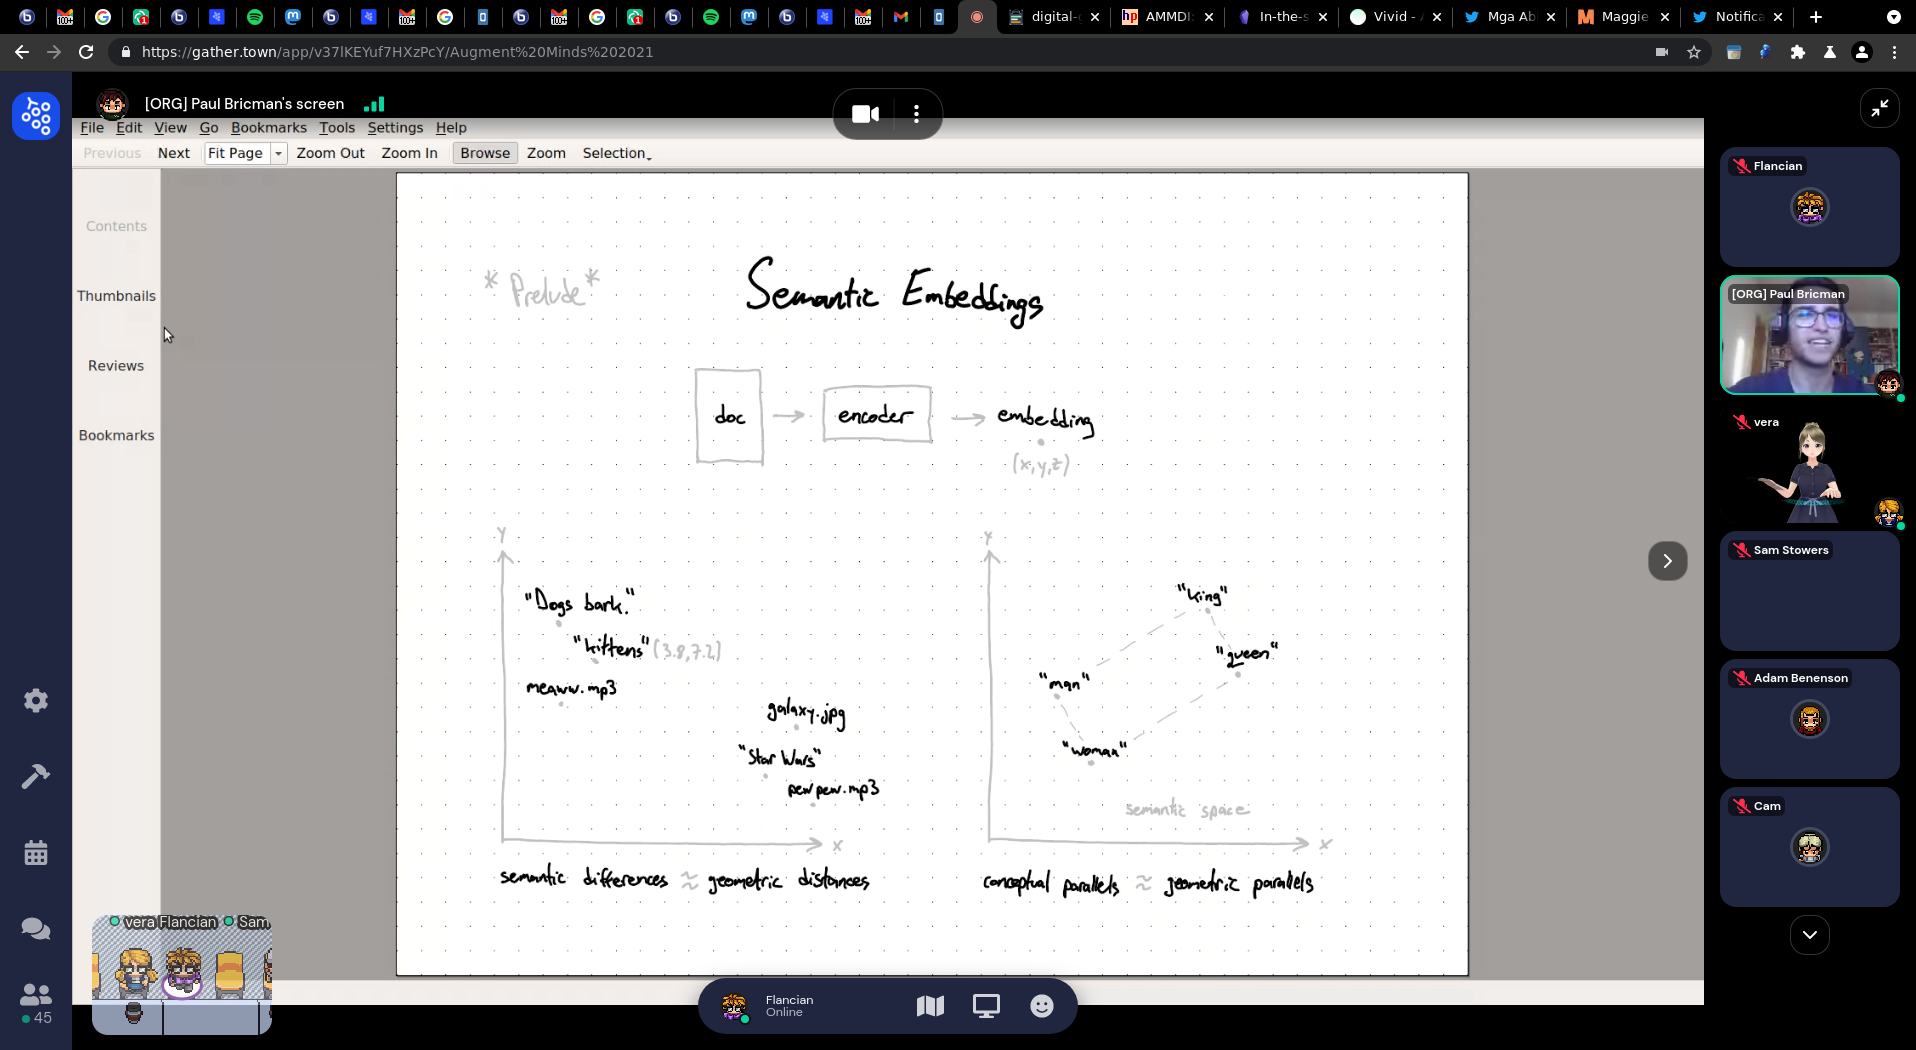 100+
1
100+
100+
1
100+
digital-g
AMMDI:
In-the-s
Vivid - A
Mga Ab
Maggie
Notifica
https://gather.town/app/v37lKEYuf7HXzPcY/Augment%20Minds%202021
[ORG] Paul Bricman's screen
File Edit View Go Bookmarks Tools Settings Help
Previous Next Fit Page Zoom Out Zoom In Browse Zoom Selection
Contents
Thumbnails
Reviews
Bookmarks
* Prelude *
Semantic Embeddings
doc → encoder → embedding
(x,y,z)
Y
"Dogs bark."
"kittens" (3.8,7.2)
meaww.mp3
galaxy.jpg
"Star Wars"
pewpew.mp3
X
semantic differences ≈ geometric distances
Y
"king"
"queen"
"man"
"woman"
semantic space
X
conceptual parallels ≈ geometric parallels
Flancian
[ORG] Paul Bricman
vera
Sam Stowers
Adam Benenson
Cam
vera Flancian Sam
45
Flancian
Online